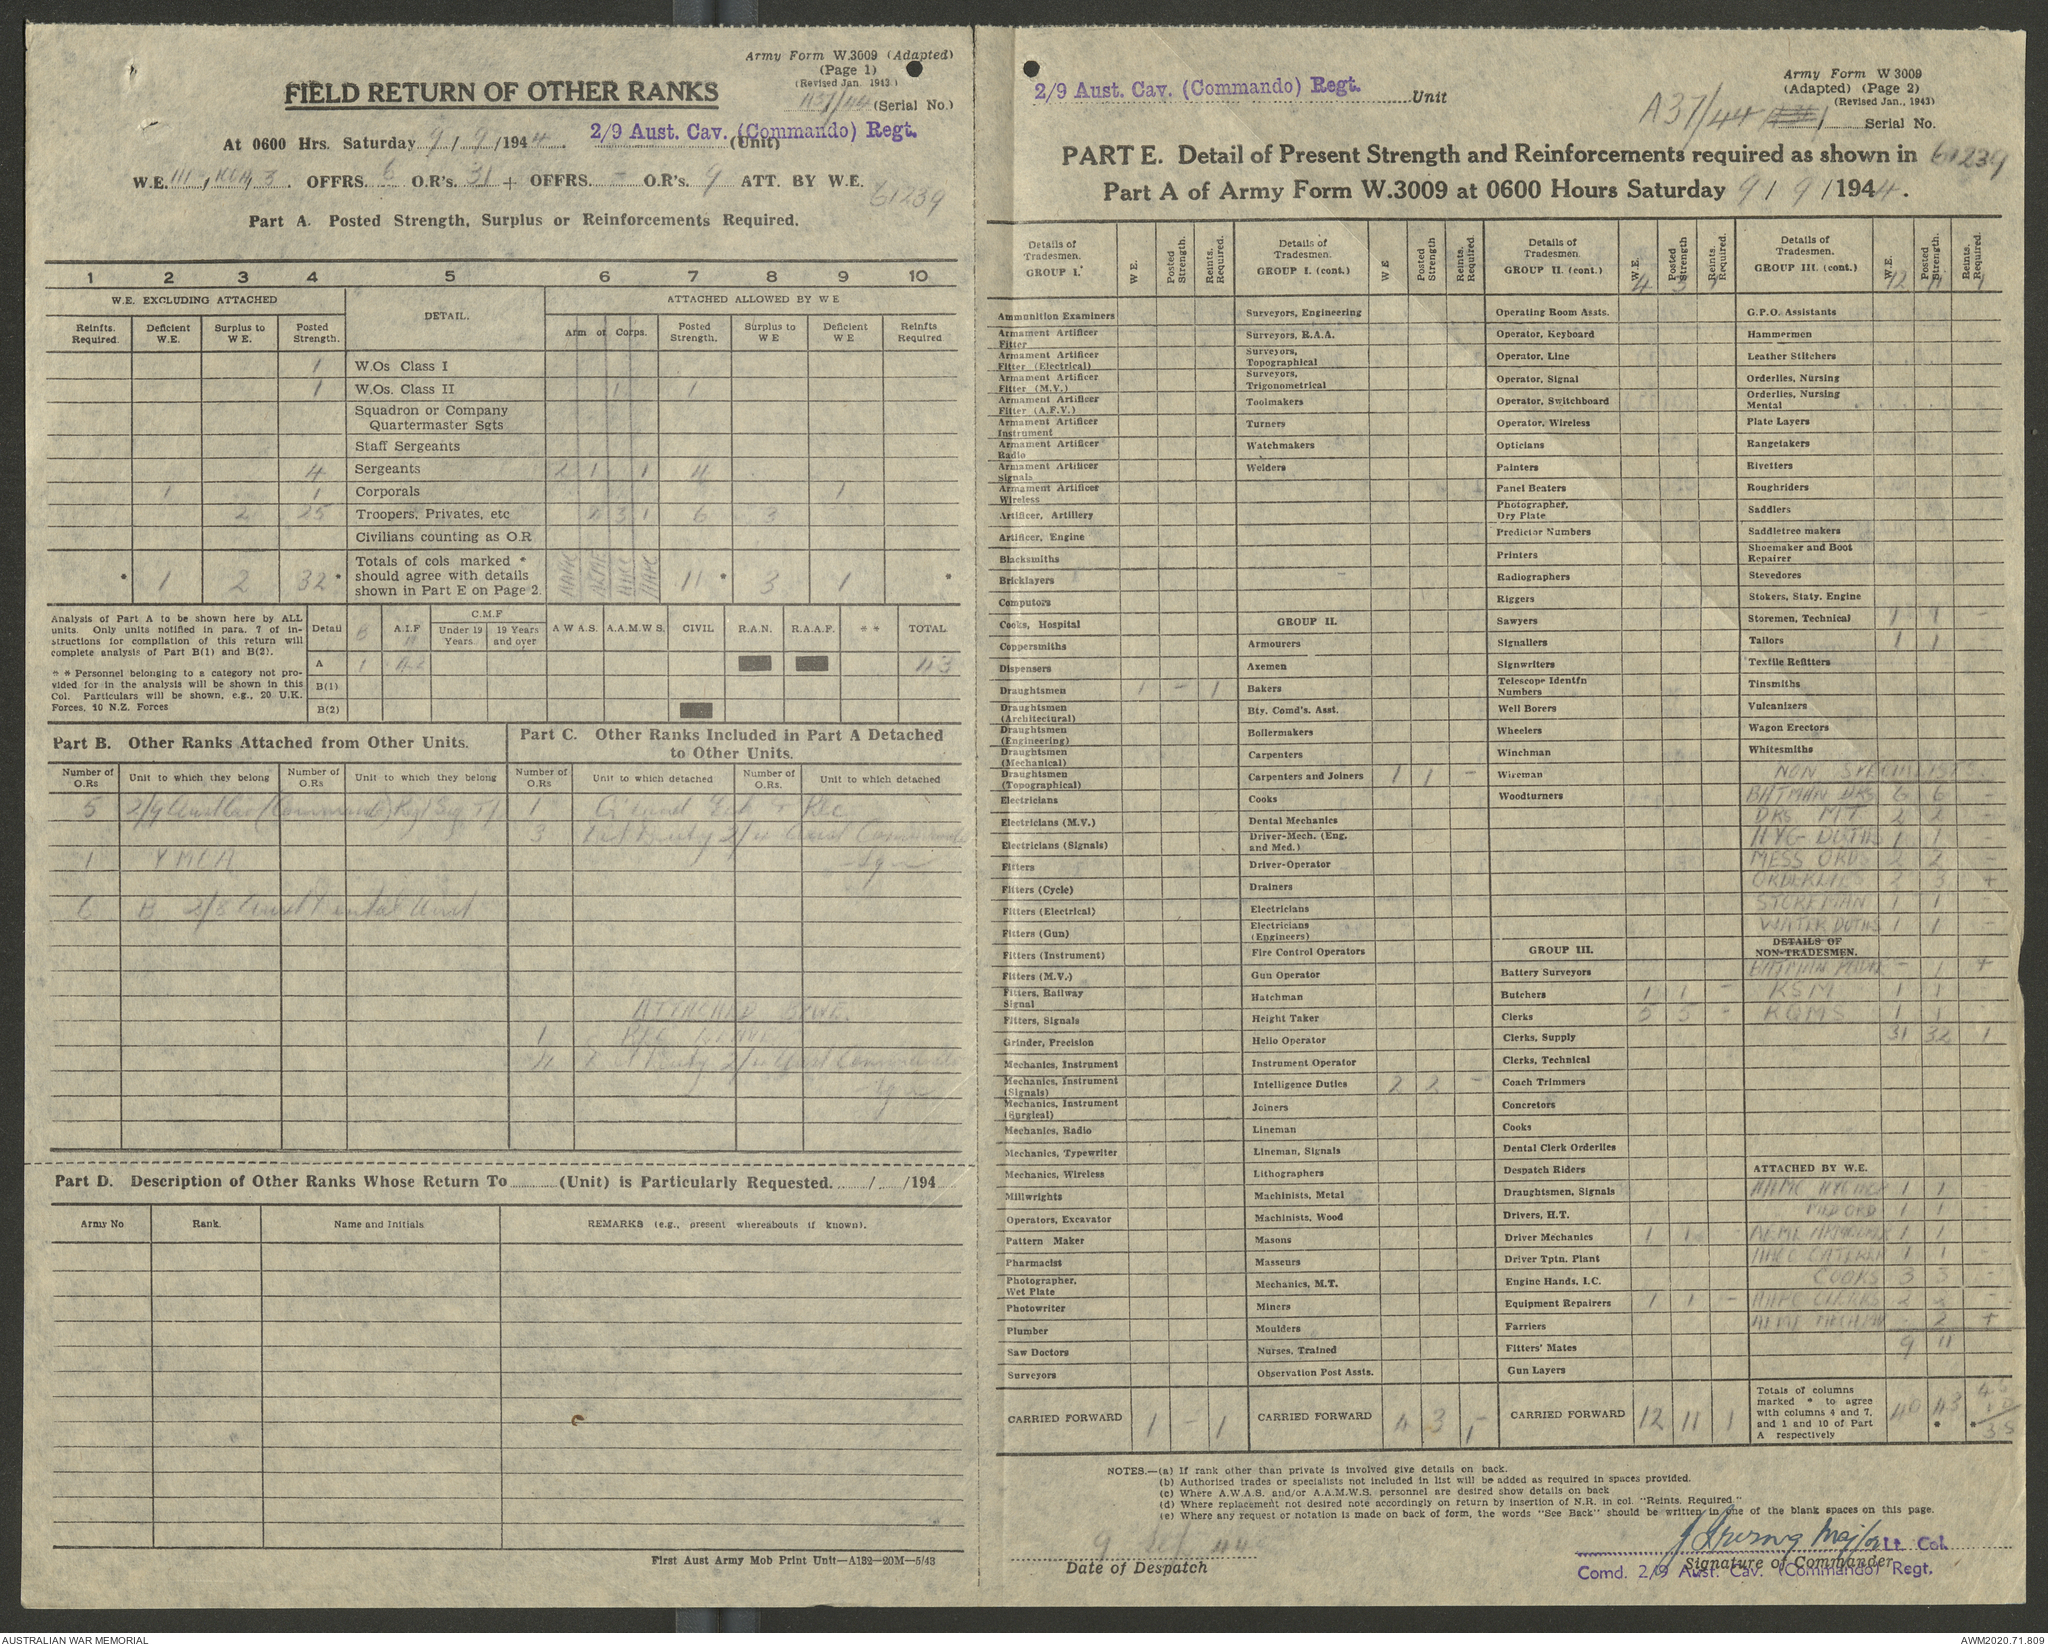 Army Form W.3009 (Adapted)
(Page 1)
(Revised Jan. 1943.)
FIELD RETURN OF OTHER RANKS
A37/44 (Serial No.)
At 0600 Hrs. Saturday 9/9/1944. 2/9 Aust. Cav. (Commando) Regt. (Unit)
W.E. III, 3. OFFRS. 6 O.R's. 31 + OFFRS. - O.R's. 9 ATT. BY W.E.
61239
Part A. Posted Strength, Surplus or Reinforcements Required.
1 2 3 4 5 6 7 8 9 10
W.E. EXCLUDING ATTACHED DETAIL. ATTACHED ALLOWED BY W E
Reinfts. Required. Deficient W.E. Surplus to W E. Posted Strength. Arm or Corps. Posted Strength. Surplus to W E Deficient W E Reinfts Required
1 W.Os Class I
1 W.Os. Class II 1 1
Squadron or Company
Quartermaster Sgts
Staff Sergeants
4 Sergeants 2 1 1 4
1 1 Corporals 1
2 25 Troopers, Privates, etc 2 3 1 6 3
Civilians counting as O.R
* 1 2 32 * Totals of cols marked * should agree with details shown in Part E on Page 2. AAMC AEME AACC AAPC 11 * 3 1 *
Analysis of Part A to be shown here by ALL
units. Only units notified in para. 7 of in-
structions for compilation of this return will
complete analysis of Part B(1) and B(2).
* * Personnel belonging to a category not pro-
vided for in the analysis will be shown in this
Col. Particulars will be shown, e.g., 20 U.K.
Forces, 10 N.Z. Forces
Detail B A.I.F C.M.F Under 19 Years. 19 Years and over A W A S. A.A.M.W S. CIVIL R.A.N. R.A.A.F. * * TOTAL
A 1 42 43
B(1)
B(2)
Part B. Other Ranks Attached from Other Units.
Part C. Other Ranks Included in Part A Detached
to Other Units.
Number of O.Rs Unit to which they belong Number of O.Rs Unit to which they belong Number of O.Rs Unit to which detached Number of O.Rs. Unit to which detached
5 2/9 Aust Cav (Commando) Regt Sig Tp 1 Rec
3 Det Duty 2/ Aust Commando
1 YMCA Sqn
6 B 2/8 Aust Dental Unit
ATTACHED BY W.E.
1
4 Det Duty 2/ Aust Commando
Sqn
Part D. Description of Other Ranks Whose Return To (Unit) is Particularly Requested. / /194
Army No Rank. Name and Initials REMARKS (e.g., present whereabouts if known).
First Aust Army Mob Print Unit—A132—20M—5/43
2/9 Aust. Cav. (Commando) Regt. Unit
Army Form W 3009
(Adapted) (Page 2)
(Revised Jan., 1943)
A37/44 Serial No.
PART E. Detail of Present Strength and Reinforcements required as shown in 61239
Part A of Army Form W.3009 at 0600 Hours Saturday 9/9/1944.
Details of Tradesmen. GROUP I. W E. Posted Strength. Reints. Required.
Ammunition Examiners
Armament Artificer Fitter
Armament Artificer Fitter (Electrical)
Armament Artificer Fitter (M.V.)
Armament Artificer Fitter (A.F.V.)
Armament Artificer Instrument
Armament Artificer Radio
Armament Artificer Signals
Armament Artificer Wireless
Artificer, Artillery
Artificer, Engine
Blacksmiths
Bricklayers
Computors
Cooks, Hospital
Coppersmiths
Dispensers
Draughtsmen 1 - 1
Draughtsmen (Architectural)
Draughtsmen (Engineering)
Draughtsmen (Mechanical)
Draughtsmen (Topographical)
Electricians
Electricians (M.V.)
Electricians (Signals)
Fitters
Fitters (Cycle)
Fitters (Electrical)
Fitters (Gun)
Fitters (Instrument)
Fitters (M.V.)
Fitters, Railway Signal
Fitters, Signals
Grinder, Precision
Mechanics, Instrument
Mechanics, Instrument (Signals)
Mechanics, Instrument (Surgical)
Mechanics, Radio
Mechanics, Typewriter
Mechanics, Wireless
Millwrights
Operators, Excavator
Pattern Maker
Pharmacist
Photographer, Wet Plate
Photowriter
Plumber
Saw Doctors
Surveyors
CARRIED FORWARD 1 - 1
Details of Tradesmen. GROUP I. (cont.) W E Posted Strength Reints. Required.
Surveyors, Engineering
Surveyors, R.A.A.
Surveyors, Topographical
Surveyors, Trigonometrical
Toolmakers
Turners
Watchmakers
Welders
GROUP II.
Armourers
Axemen
Bakers
Bty. Comd's. Asst.
Boilermakers
Carpenters
Carpenters and Joiners 1 1 -
Cooks
Dental Mechanics
Driver-Mech. (Eng. and Med.)
Driver-Operator
Drainers
Electricians
Electricians (Engineers)
Fire Control Operators
Gun Operator
Hatchman
Height Taker
Helio Operator
Instrument Operator
Intelligence Duties 2 2 -
Joiners
Lineman
Lineman, Signals
Lithographers
Machinists, Metal
Machinists, Wood
Masons
Masseurs
Mechanics, M.T.
Miners
Moulders
Nurses, Trained
Observation Post Assts.
CARRIED FORWARD 4 3 1
Details of Tradesmen. GROUP II. (cont.) W.E. Posted Strength Reints. Required.
4 3 1
Operating Room Assts.
Operator, Keyboard
Operator, Line
Operator, Signal
Operator, Switchboard
Operator, Wireless
Opticians
Painters
Panel Beaters
Photographer, Dry Plate
Predictor Numbers
Printers
Radiographers
Riggers
Sawyers
Signallers
Signwriters
Telescope Identfn Numbers
Well Borers
Wheelers
Winchman
Wireman
Woodturners
GROUP III.
Battery Surveyors
Butchers 1 1 -
Clerks 5 5 -
Clerks, Supply
Clerks, Technical
Coach Trimmers
Concretors
Cooks
Dental Clerk Orderlies
Despatch Riders
Draughtsmen, Signals
Drivers, H.T.
Driver Mechanics 1 1
Driver Tptn. Plant
Engine Hands, I.C.
Equipment Repairers 1 1 -
Farriers
Fitters' Mates
Gun Layers
CARRIED FORWARD 12 11 1
Details of Tradesmen. GROUP III. (cont.) W.E. Posted Strength. Reints. Required.
12 11 1
G.P.O. Assistants
Hammermen
Leather Stitchers
Orderlies, Nursing
Orderlies, Nursing Mental
Plate Layers
Rangetakers
Rivetters
Roughriders
Saddlers
Saddletree makers
Shoemaker and Boot Repairer
Stevedores
Stokers, Staty. Engine
Storemen, Technical 1 1 -
Tailors 1 1
Textile Refitters
Tinsmiths
Vulcanizers
Wagon Erectors
Whitesmiths
NON SPECIALISTS
BATMAN DRS 6 6 -
DRS MT 2 2 -
HYG DUTIES 1 1
MESS ORDS 2 2 -
ORDERLIES 2 3 +
STOREMAN 1 1 -
WATER DUTIES 1 1 -
DETAILS OF NON-TRADESMEN.
BATMAN - 1 +
RSM 1 1
RQMS 1 1
31 32 1
ATTACHED BY W.E.
AAMC HYGIENE 1 1 -
MED ORD 1 1 -
AEME ARMOURER 1 1
AACC CATERER 1 1
COOKS 3 3 -
AAPC CLERKS 2 2 -
AEME - 2 +
9 11
Totals of columns marked * to agree with columns 4 and 7, and 1 and 10 of Part A respectively 40 43 *
NOTES.—(a) If rank other than private is involved give details on back.
(b) Authorised trades or specialists not included in list will be added as required in spaces provided.
(c) Where A.W.A.S. and/or A.A.M.W.S. personnel are desired show details on back
(d) Where replacement not desired note accordingly on return by insertion of N.R. in col. "Reints. Required."
(e) Where any request or notation is made on back of form, the words "See Back" should be written in one of the blank spaces on this page.
9 Sep 44
Date of Despatch
Major Lt Col.
Signature of Commander
Comd. 2/9 Aust. Cav. (Commando) Regt.
AUSTRALIAN WAR MEMORIAL
AWM2020.71.809